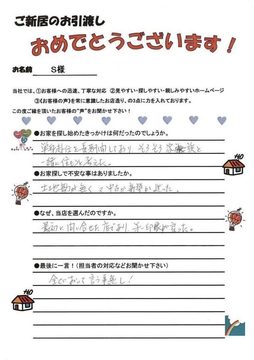 ご新居のお引渡し
おめでとうございます!
お名前 S様
当社では、①お客様への迅速、丁寧な対応 ②見やすい・探しやすい・親しみやすいホームページ
③《お客様の声》を常に意識したお店造り、の3点に力を入れております。
この度ご縁を頂いたお客様の"声"をお聞かせ下さい!
●お家を探し始めたきっかけは何だったのでしょうか。
単身赴任を長期間しており そろそろ家族と
一緒に住もうと考えた。
●お家探しで不安な事はありましたか。
土地勘が無くて
●なぜ、当店を選んだのですか。
最初に問い合せた店であり
●最後に一言!(担当者の対応などお聞かせ下さい)
全てにおいて言う事無し!